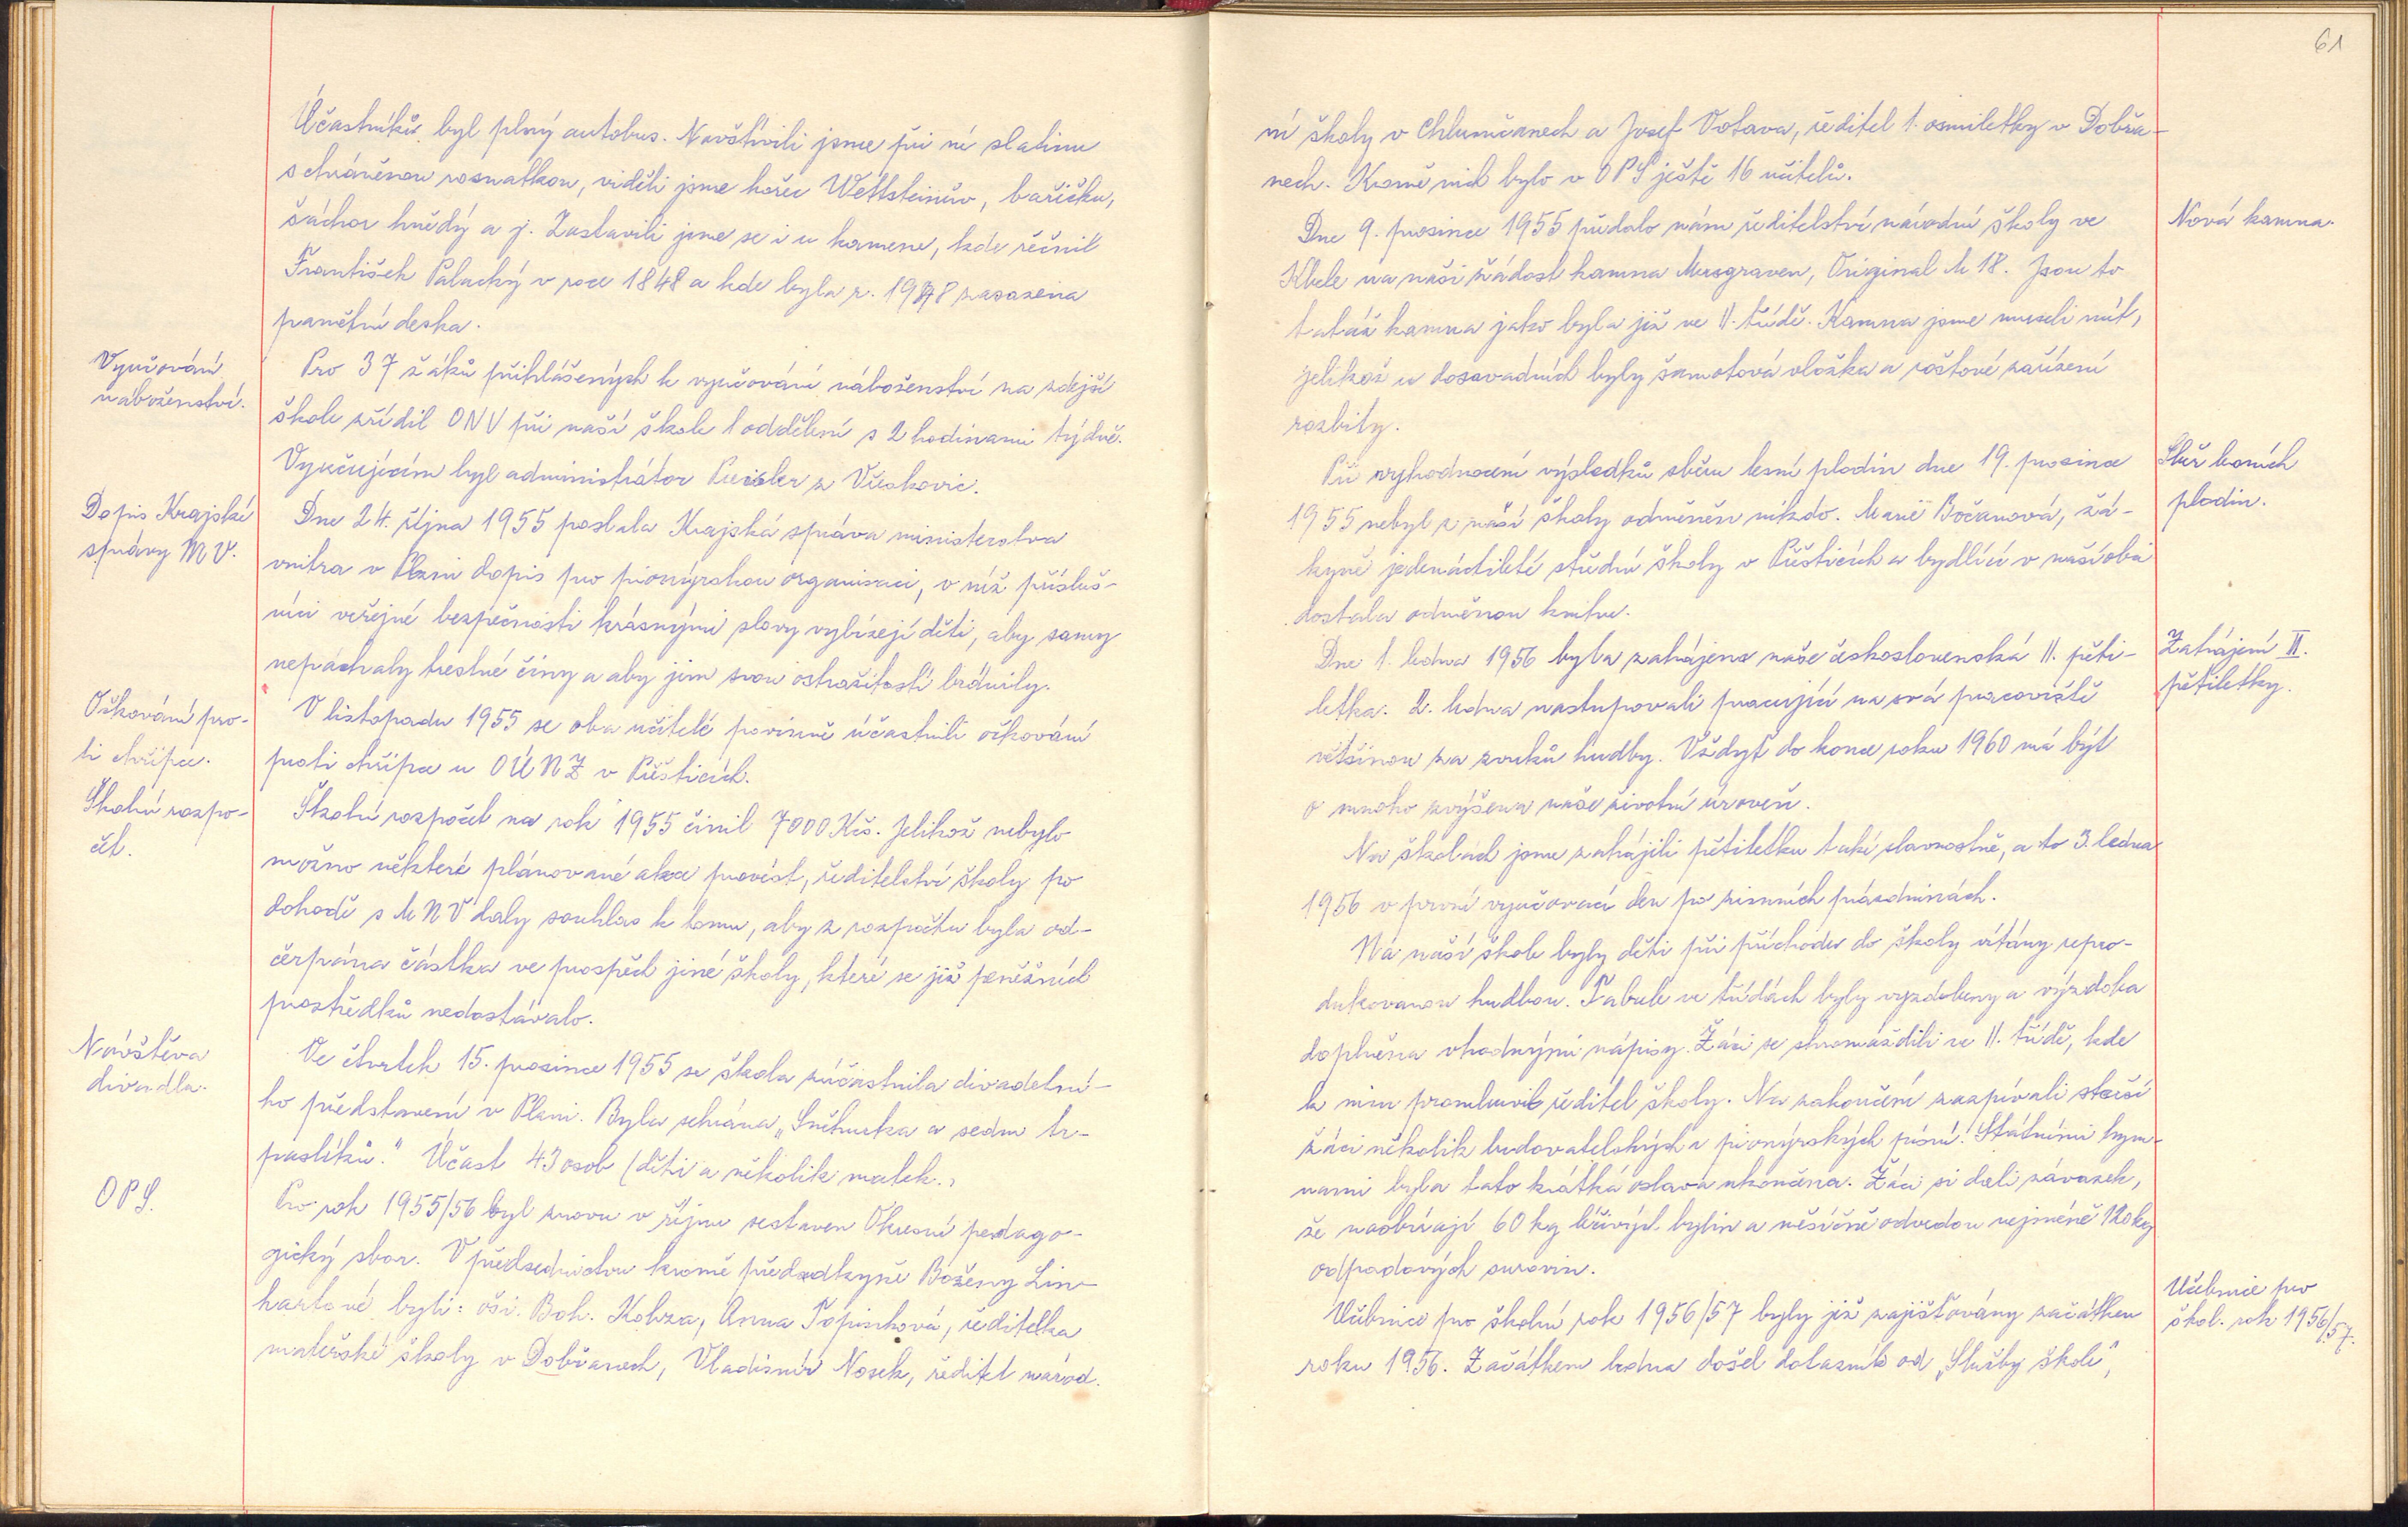 Účastníků byl plný autobus. Navštívili jsme při ní slatinu
s chráněnou rosnatkou, viděli jsme hořec Wettsteinův, bařičku,
šáchor hnědý a j. Zastavili jsme se i u kamene, kde řečnil
František Palacký v roce 1848 a kde byla r. 1948 zasazena
pamětní deska.
Vyučování
náboženství.
Pro 37 žáků přihlášených k vyučování náboženství na zdejší
škole zřídil ONV při naší škole 1 oddělení s 2 hodinami týdně.
Vyučujícím byl administrátor z
Dopis Krajské
správy MV.
Dne 24. října 1955 poslala Krajská správa ministerstva
vnitra v Plzni dopis pro pionýrskou organisaci, v níž přísluš-
níci veřejné bezpečnosti krásnými slovy vybízejí děti, aby samy
nepáchaly trestné činy a aby jim svou ostražitostí bránily.
Očkování pro-
ti chřipce.
V listopadu 1955 se oba učitelé povinně účastnili očkování
proti chřipce u OÚNZ v Přešticích.
Školní rozpo-
čet.
Školní rozpočet na rok 1955 činil 7000 Kčs. Jelikož nebylo
možno některé plánované akce provést, ředitelství školy po
dohodě s MNV daly souhlas k tomu, aby z rozpočtu byla od-
čerpána částka ve prospěch jiné školy, které se již peněžních
prostředků nedostávalo.
Návštěva
divadla.
Ve čtvrtek 15. prosince 1955 se škola zúčastnila divadelní-
ho představení v Plzni. Byla sehrána „Sněhurka a sedm tr-
paslíků." Účast 43 osob (děti a několik matek.)
OPS.
Pro rok 1955/56 byl znovu v říjnu sestaven Okresní pedago-
gický sbor. V předsednictvu kromě předsedkyně Boženy Lin-
hartové byli: oši. Boh. Kohza, Anna Topinková, ředitelka
mateřské školy v Dobřanech, Vladimír Nosek, ředitel národ.
61
ní školy v Chlumčanech a Josef Votava, ředitel 1. osmiletky v Dobřa-
nech. Kromě nich bylo v OPS ještě 16 učitelů.
Nová kamna.
Dne 9. prosince 1955 předalo nám ředitelství národní školy ve
Kbele na naši žádost kamna Musgraven, Original M 18. Jsou to
tatáž kamna jako byla již ve II. třídě. Kamna jsme museli mít,
jelikož u dosavadních byly šamotová vložka a roštové zařízení
rozbity.
Sběr lesních
plodin.
Při vyhodnocení výsledků sběru lesní plodin dne 19. prosince
1955 nebyl z naší školy odměněn nikdo. Marie Bočanová, žá-
kyně jedenáctileté střední školy v Přešticích a bydlící v naší obci
dostala odměnou knihu.
Zahájení II.
pětiletky.
Dne 1. ledna 1956 byla zahájena naše československá II. pěti-
letka. 2. ledna nastupovali pracující na svá pracoviště
většinou za zvuků hudby. Vždyť do konce roku 1960 má být
o mnoho zvýšena naše životní úroveň.
Na školách jsme zahájili pětiletku také slavnostně, a to 3. ledna
1956 v první vyučovací den po zimních prázdninách.
Na naší škole byly děti při příchodu do školy vítány repro-
dukovanou hudbou. Tabule ve třídách byly vyzdobeny a výzdoba
doplněna vhodnými nápisy. Žáci se shromáždili ve II. třídě, kde
k nim promluvil ředitel školy. Na zakončení zazpívali starší
žáci několik budovatelských a pionýrských písní. Státními hym-
nami byla tato krátká oslava ukončena. Žáci si dali závazek,
že nasbírají 60 kg léčivých bylin a měsíčně odvedou nejméně 120 kg
odpadových surovin.
Učebnice pro
škol. rok 1956/57.
Učebnice pro školní rok 1956/57 byly již zajišťovány začátkem
roku 1956. Začátkem ledna došel dotazník od „Služby škole",